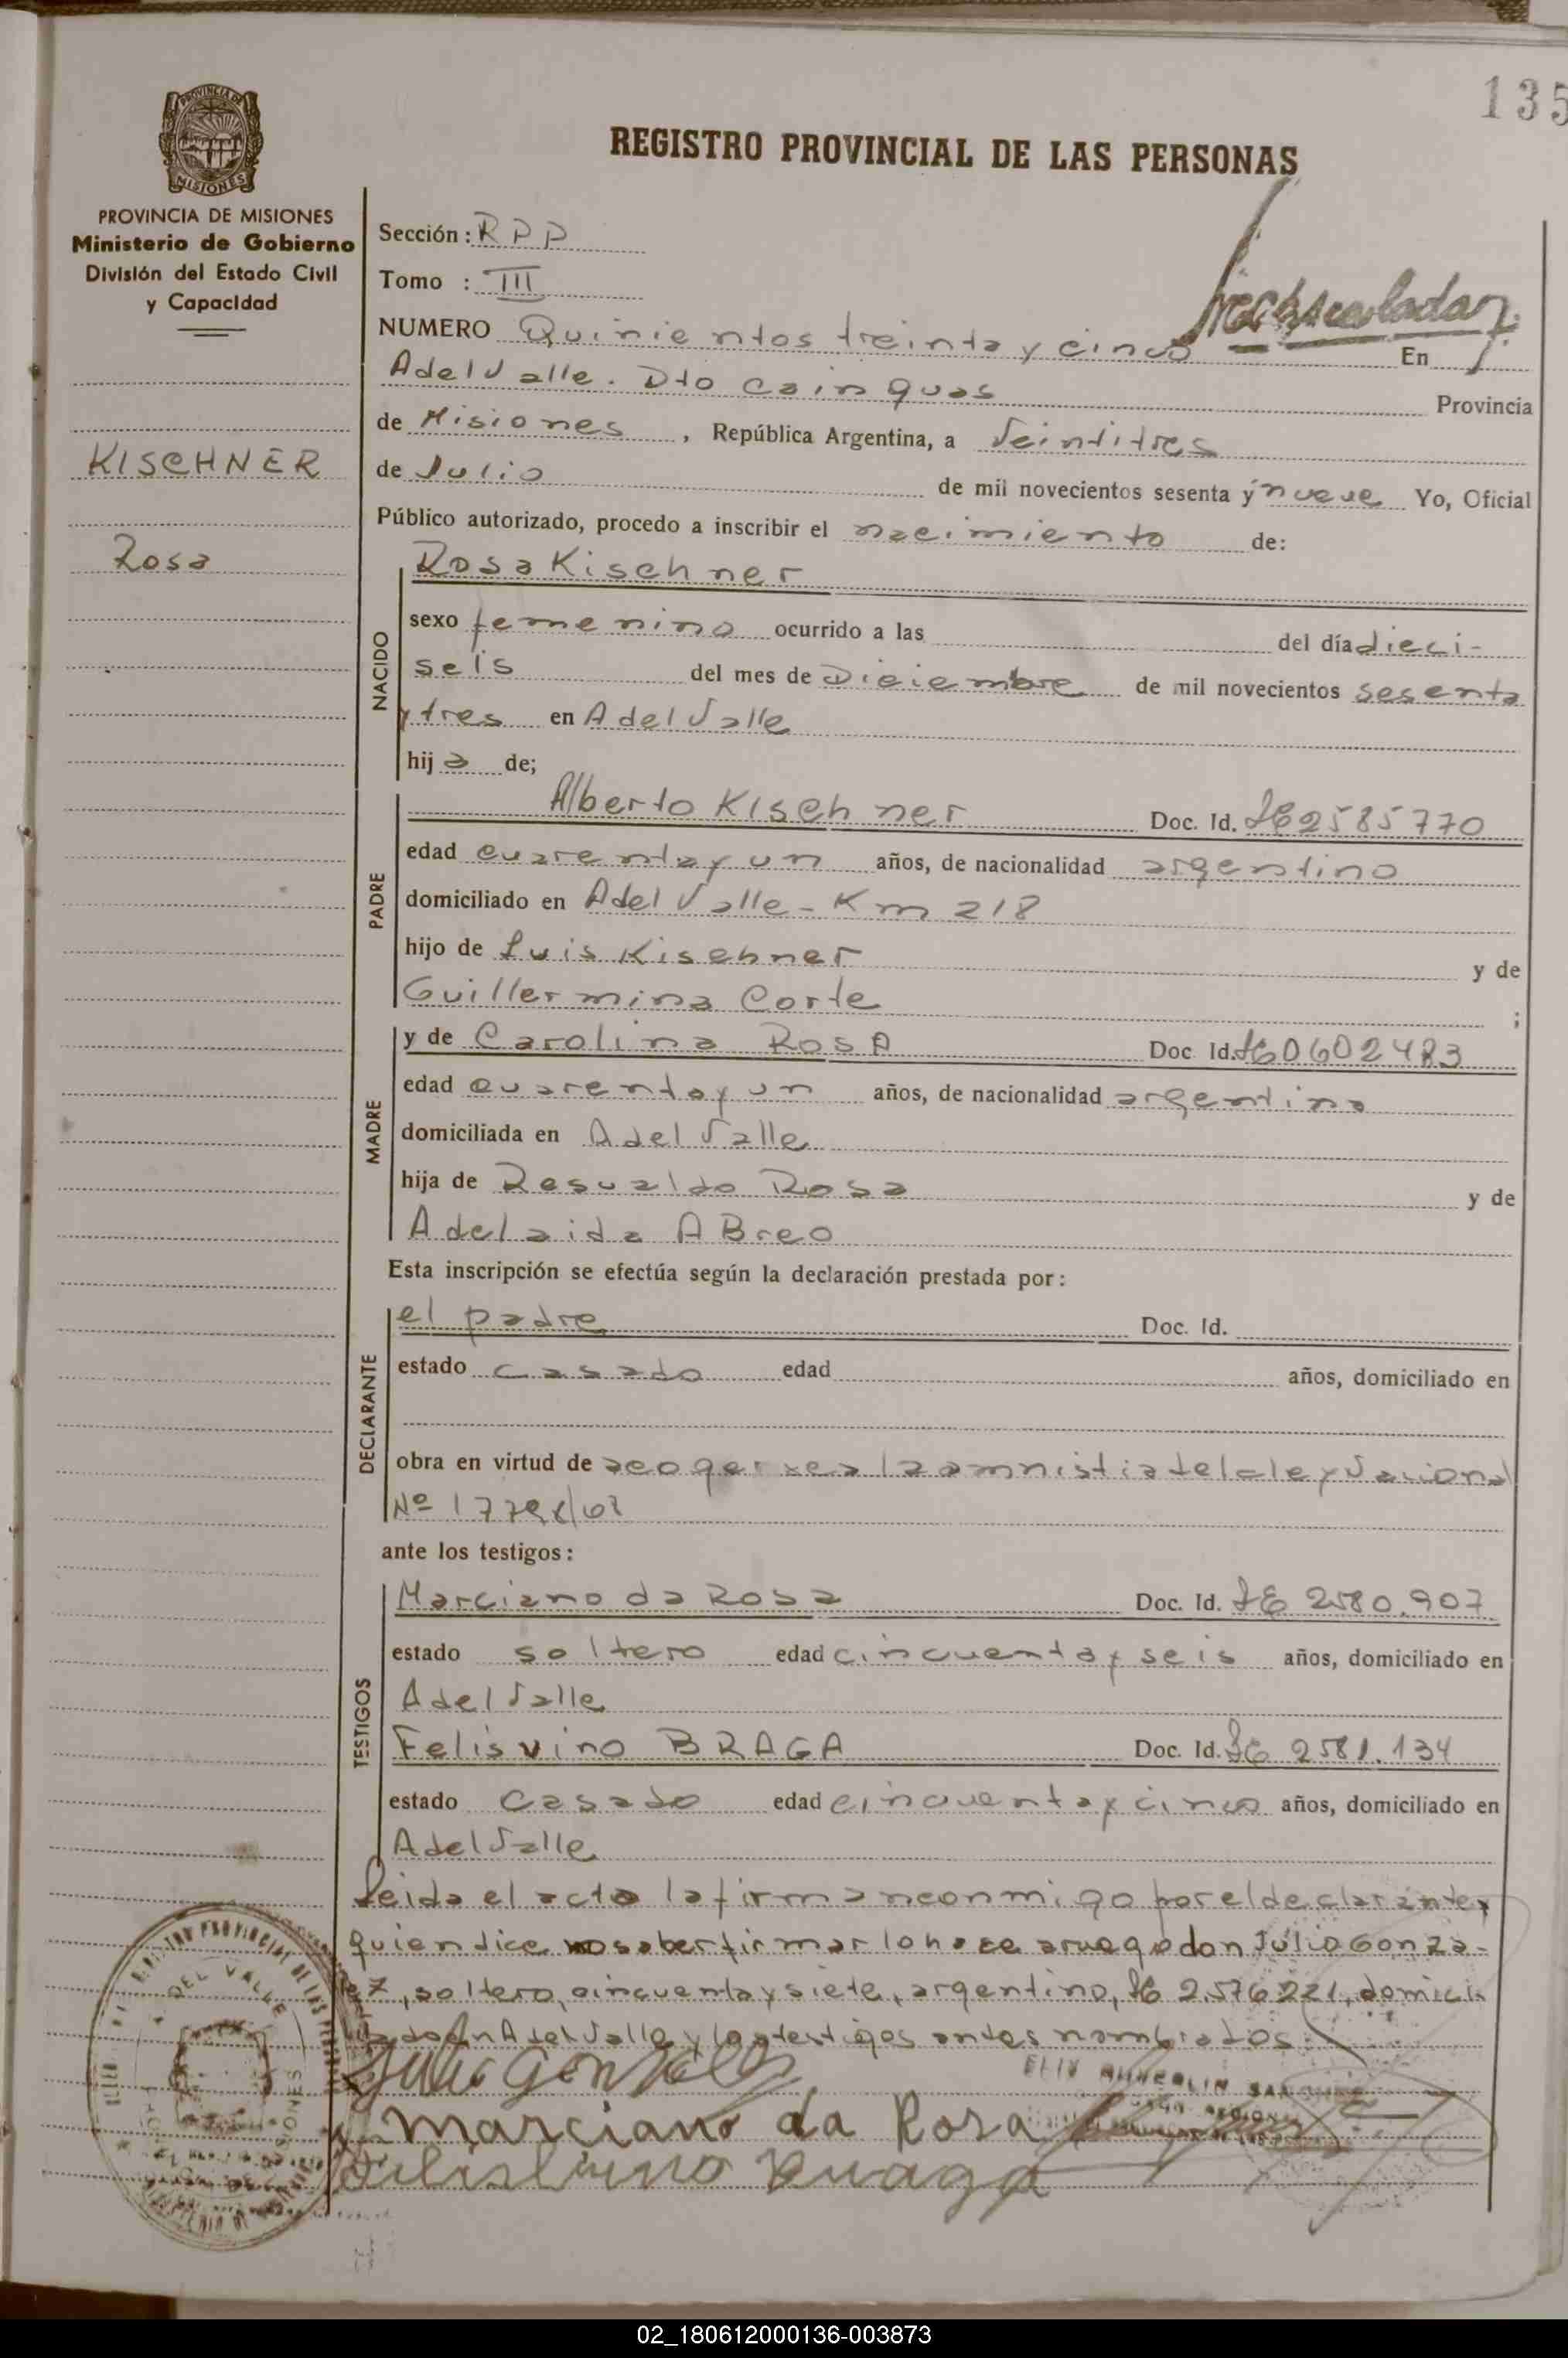 135
REGISTRO PROVINCIAL DE LAS PERSONAS
PROVINCIA DE MISIONES
Ministerio de Gobierno
División del Estado Civil
y Capacidad
KISCHNER
Rosa
Sección: RPP
Tomo : III
NUMERO Quinientos treinta y cinco En
Adel Valle. Dto cainguas Provincia
de Misiones, República Argentina, a Veintitres
de Julio de mil novecientos sesenta y nueve Yo, Oficial
Público autorizado, procedo a inscribir el nacimiento de:
NACIDO
Rosa Kischner
sexo femenino ocurrido a las del día dieci-
seis del mes de Diciembre de mil novecientos sesenta
y tres en A del Valle
hija de;
PADRE
Alberto Kischner Doc. Id. LE 2585770
edad cuarenta y un años, de nacionalidad argentino
domiciliado en Adel Valle - Km 218
hijo de Luis Kischner y de
Guillermina Corte ;
MADRE
y de Carolina ROSA Doc Id. LC 0602483
edad cuarenta y un años, de nacionalidad argentina
domiciliada en A del Valle
hija de Resualdo Rosa y de
Adelaida ABreo
Esta inscripción se efectúa según la declaración prestada por:
DECLARANTE
el padre Doc. Id.
estado casado edad años, domiciliado en
obra en virtud de acogerse a la amnistia de la ley Nacional
Nº
ante los testigos:
TESTIGOS
Marciano da Rosa Doc. Id. LE 2580.907
estado soltero edad cincuenta y seis años, domiciliado en
A del Valle
Felisvino BRAGA Doc. Id. LE 2581.134
estado casado edad cincuenta y cinco años, domiciliado en
A del Valle
Leida el acta la firman conmigo por el declarante,
quien dice no saber firmar lo hace a ruego don Julio Gonza-
lez, soltero, cincuenta y siete, argentino, LE 2.576221, domicili
ado en A del Valle y los testigos antes nombrados.
Julio Gonzalez
Marciano da Rosa
Felisbino Braga
02_180612000136-003873